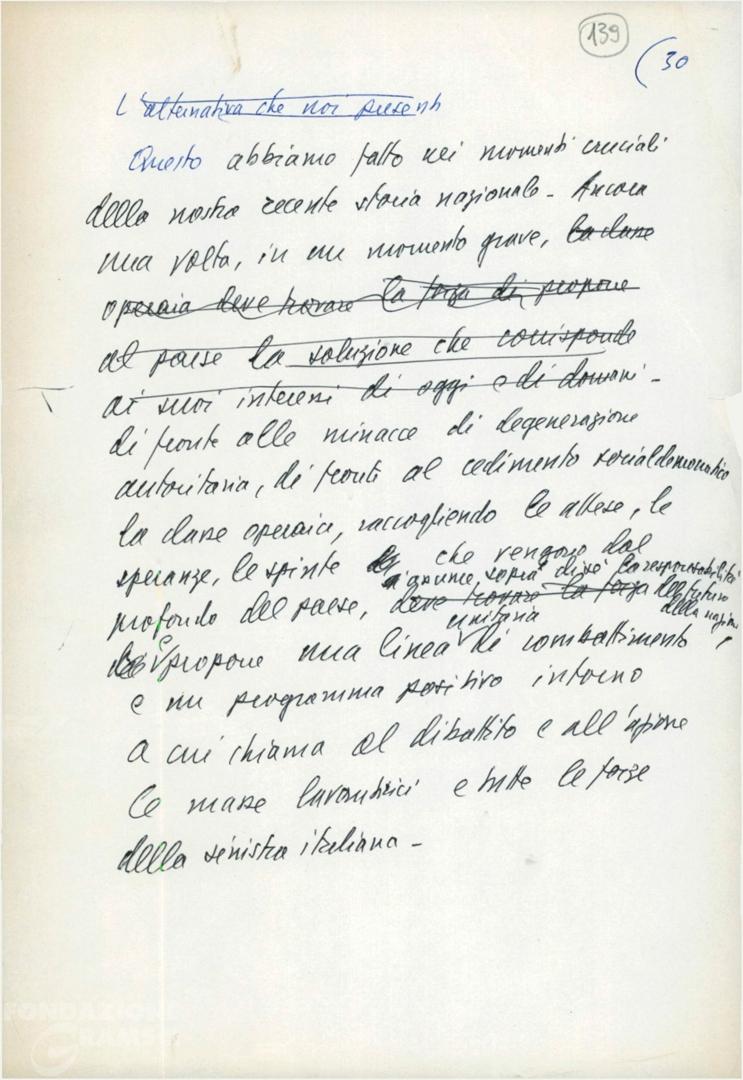 139
30
L'alternativa che noi presenti
Questo abbiamo fatto nei momenti cruciali
della nostra recente storia nazionale - Ancora
una volta, in un momento grave, la classe
operaia deve trovare la forza di proporre
al paese la soluzione che corrisponde
ai suoi interessi di oggi e di domani -
di fronte alle minacce di degenerazione
autoritaria, di fronte al cedimento socialdemocratico
la classe operaia, raccogliendo le attese, le
speranze, le spinte che vengono dal
assume, sopra di sé la responsabilità
profondo del paese, deve trovare la forza del futuro
della nazione,
unitaria
e propone una linea di combattimento
e un programma positivo intorno
a cui chiama al dibattito e all'azione
le masse lavoratrici e tutte le forze
della sinistra italiana -
FONDAZIONE
GRAMSCI